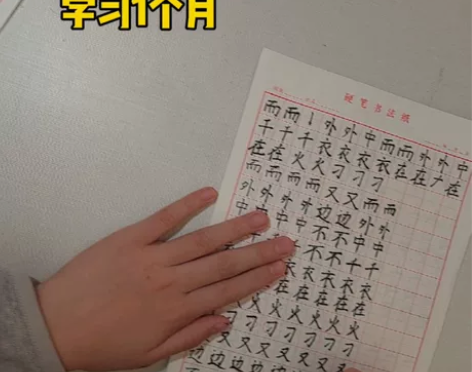 学习1个月
硬笔书法纸
雨雨丨外外中雨雨外外中
千千千衣衣衣衣在在广在
在在火火刁刁刁
雨雨雨雨又又雨雨
外外外外边边外外
中中中中不不中中
不不千千
衣衣衣衣衣
在在在在在
火火火火火火
刁刁刁刁刁刁
又又又又又又
边边边边